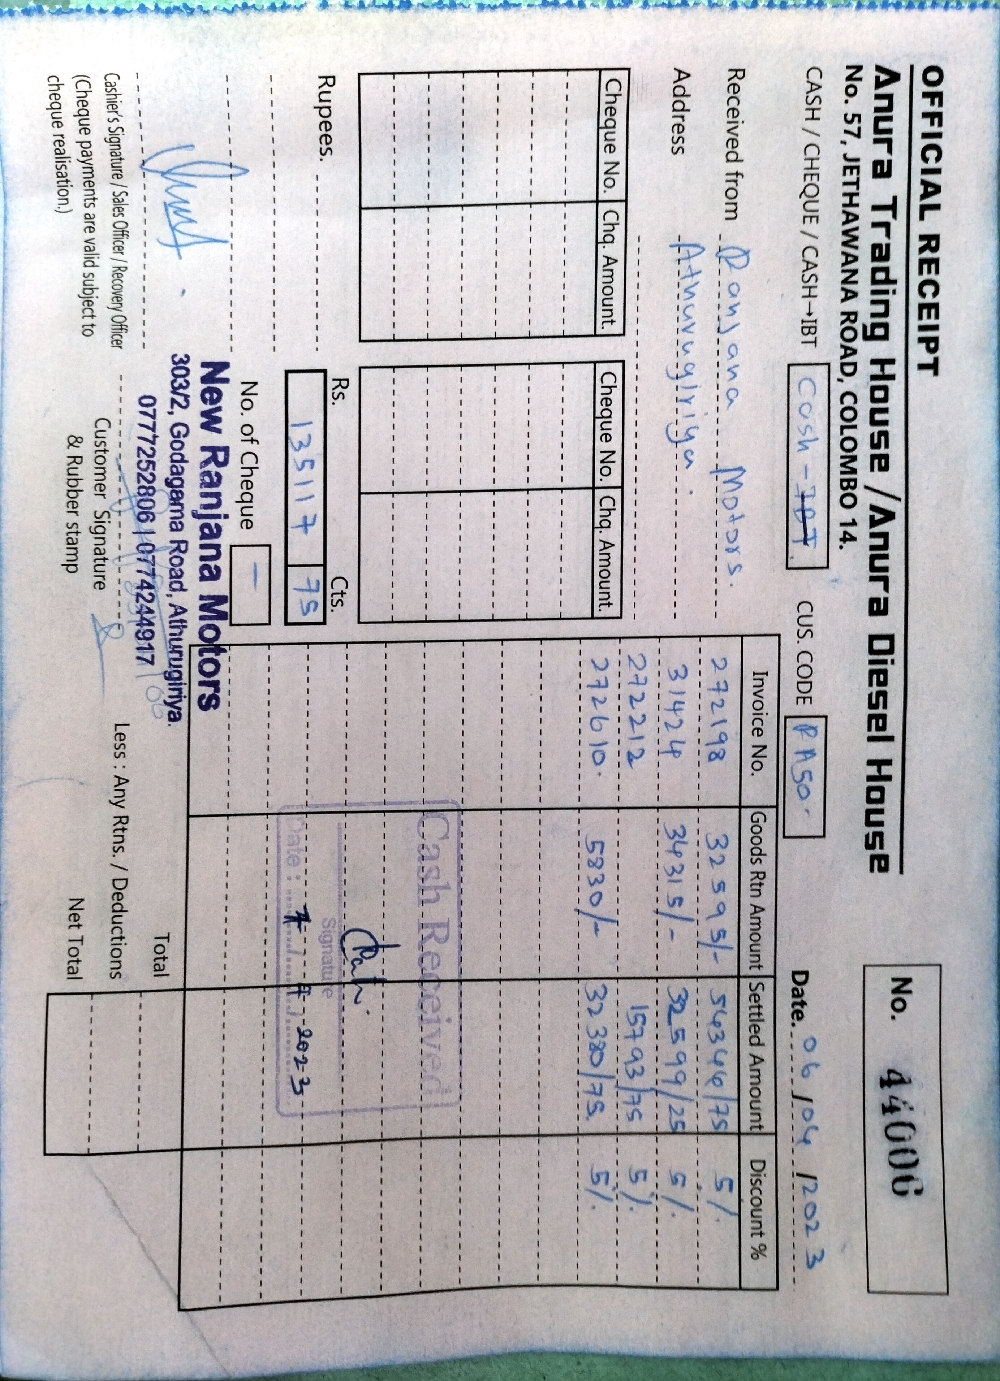 OFFICIAL RECEIPT
Anura Trading House / Anura Diesel House
No. 57, JETHAWANA ROAD, COLOMBO 14.
No. 44006
CASH / CHEQUE / CASH→IBT Cash - IBT. CUS. CODE RA50. Date. 06/04/2023
Received from Ranjana Motors.
Address Athurugiriya.
Cheque No. Chq. Amount. Cheque No. Chq. Amount.
Invoice No. Goods Rtn Amount Settled Amount Discount %
272198 32595/- 54344/75 5%.
31424 34315/- 32599/25 5%.
272212 15793/75 5%.
272610. 5830/- 32380/75. 5%.
Cash Received
Signature
Date : 7 / 4 / 2023
Rupees.
Rs. Cts.
135117 75
No. of Cheque -
New Ranjana Motors
303/2, Godagama Road, Athurugiriya.
0777252806 | 0774244917
Cashier's Signature / Sales Officer / Recovery Officer
(Cheque payments are valid subject to
cheque realisation.)
Customer Signature
& Rubber stamp
Total
Less : Any Rtns. / Deductions
Net Total